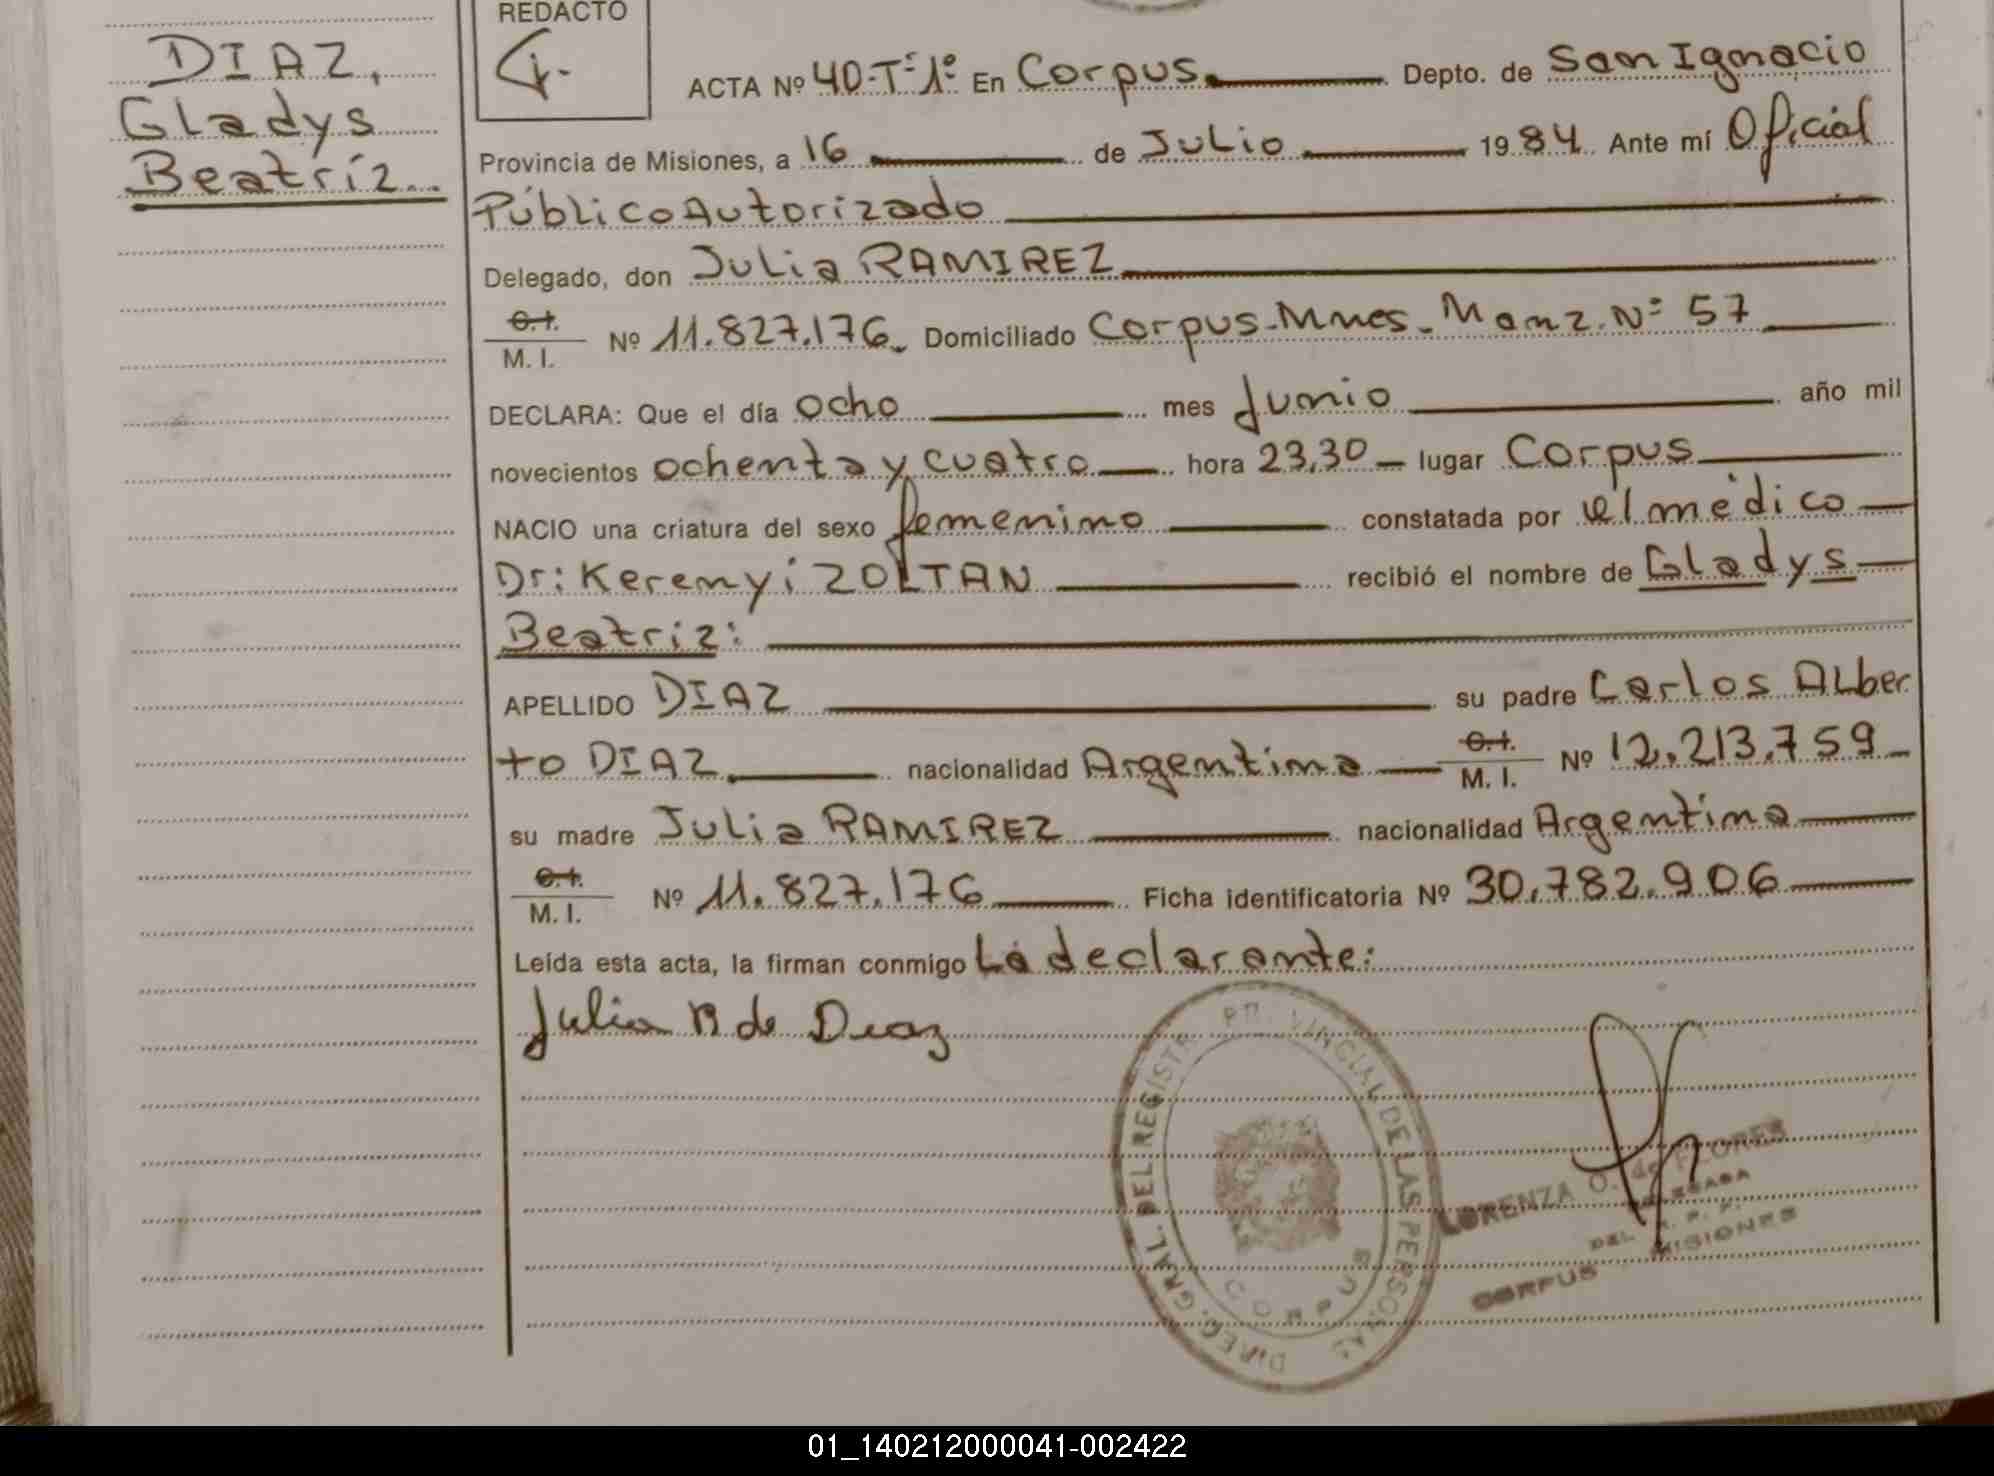 DIAZ,
Gladys
Beatríz..
REDACTO
ACTA Nº 40-Tº1º En Corpus. Depto. de San Ignacio
Provincia de Misiones, a 16 de Julio 1984 Ante mí Oficial
Público Autorizado
Delegado, don Julia RAMIREZ
C.I.
M. I. Nº 11.827.176 Domiciliado Corpus-Mnes. Manz. Nº 57
DECLARA: Que el día ocho mes Junio año mil
novecientos ochenta y cuatro hora 23,30 lugar Corpus
NACIO una criatura del sexo femenino constatada por el médico
Dr: Kerenyi ZOLTAN recibió el nombre de Gladys
Beatriz:
APELLIDO DIAZ su padre Carlos ALber
to DIAZ nacionalidad Argentina C.I. M. I. Nº 12.213.759
su madre Julia RAMIREZ nacionalidad Argentina
C.I.
M. I. Nº 11.827.176 Ficha identificatoria Nº 30.782.906
Leída esta acta, la firman conmigo La declarante:
Julia R de Diaz
DIREC. GRAL. DEL REGISTR PROVINCIAL DE LAS PERSONAS
CORPUS
LORENZA O. de FLORES
DELEGADA
DEL R. P. P.
CORPUS MISIONES
01_140212000041-002422